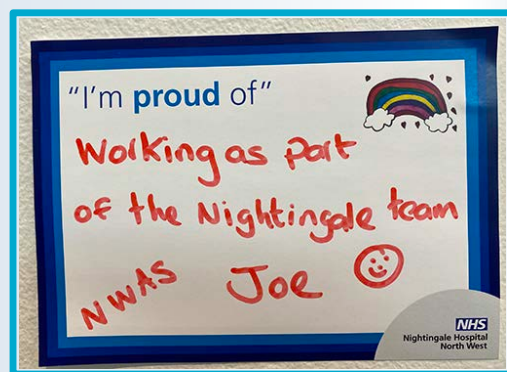 "I'm proud of"
Working as part
of the Nightingale team
NWAS Joe
NHS
Nightingale Hospital
North West